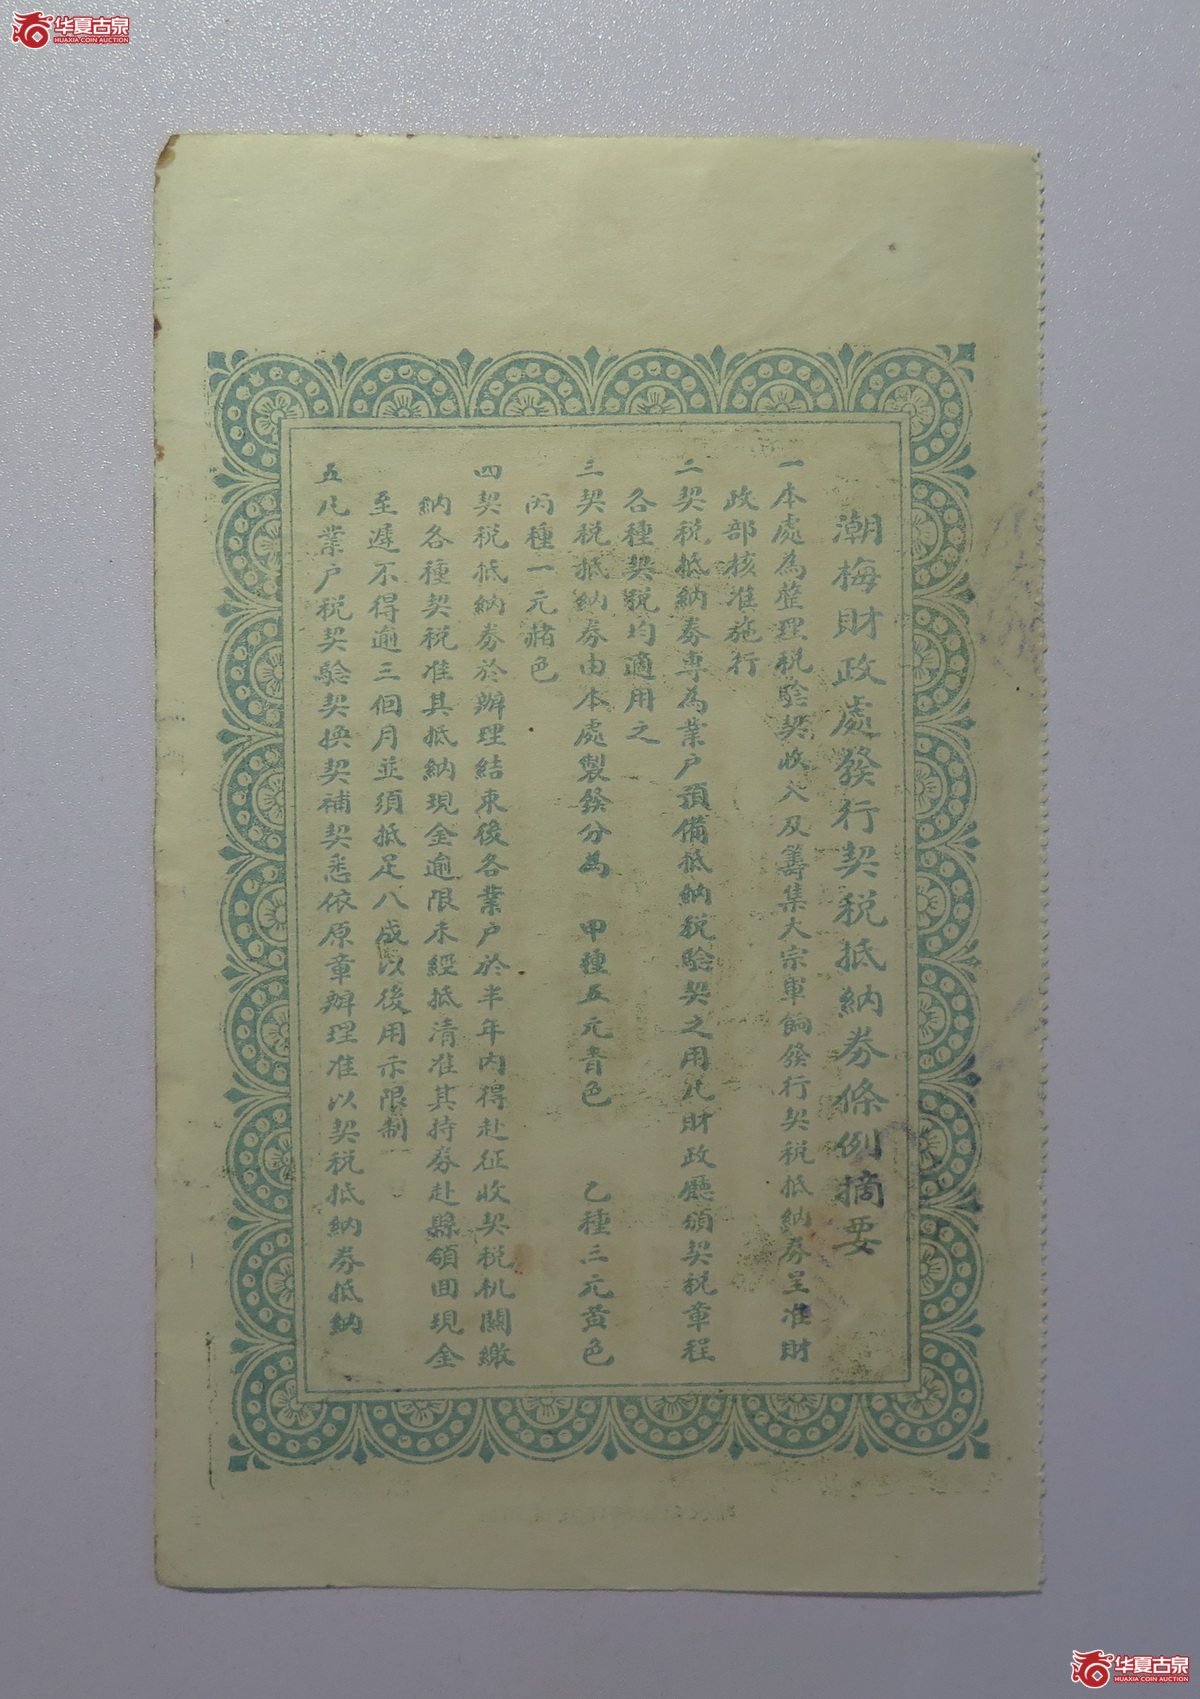 华夏古泉
HUAXIA COIN AUCTION
潮梅財政處發行契税抵納券條例摘要
一本處為整理税驗契收入及籌集大宗軍餉發行契税抵納券呈准財
政部核准施行
二契税抵納券專為業户預備抵納税驗契之用凡財政廳頒契税章程
各種契税均適用之
三契税抵納券由本處製發分為 甲種五元青色 乙種三元黄色
丙種一元赭色
四契税抵納券於辦理結束後各業户於半年内得赴征收契税机關繳
納各種契税准其抵納現金逾限未經抵清准其持券赴縣領回現金
至遲不得逾三個月並須抵足八成以後用示限制
五凡業户税契驗契换契補契悉依原章辦理准以契税抵納券抵納
华夏古泉
HUAXIA COIN AUCTION